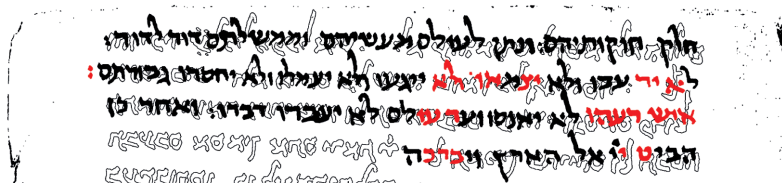 חלק חוקותיהם: ונתן לעולם מעשיהם וממשלתם דור לדור:
לא ירעבו ולא יצמאו ולא ייגעו ולא יעמלו ולא יחסרו גבורתם:
איש רעהו לא יאנסו ועד עולם לא יעברו דברו: ואחר כן
הביט ייי אל הארץ ויברכה